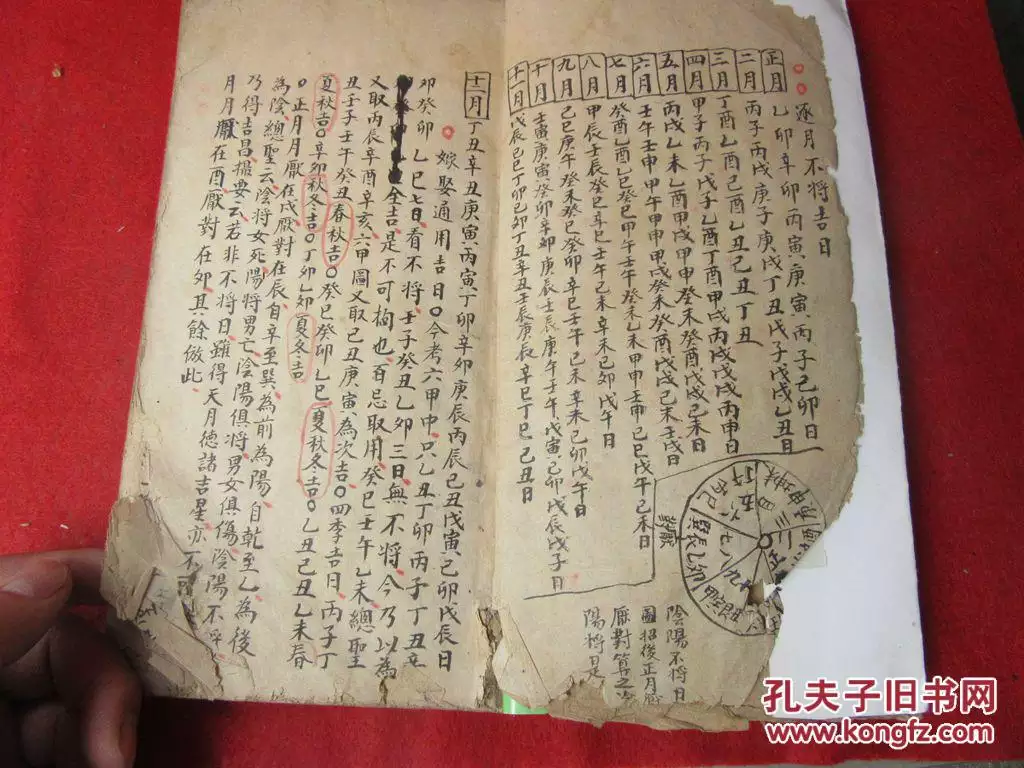 逐月不将吉日
正月 乙卯辛卯丙寅庚寅丙子己卯日
二月 丙子丙戌庚子庚戌丁丑戊子戊戌乙丑日
三月 丁酉乙酉己酉乙丑己丑丁丑
四月 甲子丙子戊子乙酉丁酉甲戌丙戌戊戌丙申日
五月 丙戌乙未乙酉甲戌甲申癸未癸酉戊戌己未日
六月 壬午壬申甲午甲申甲戌癸未癸酉戊戌己未壬戌日
七月 癸酉乙酉乙巳癸巳甲午壬午癸未乙未甲申壬申己巳戊午己未日
八月 甲辰壬辰癸巳辛巳壬午己未辛未己卯戊午日
九月 己巳庚午癸未癸巳癸卯辛巳壬午己未辛未己卯戊午日
十月 壬寅庚寅癸卯辛卯庚辰壬辰庚午壬午戊寅己卯戊辰戊子日
十一月 戊辰己巳丁卯己卯丁丑辛丑壬辰庚辰辛巳丁巳己丑日
對厭
陰陽不将日
圖招後正月厭
厭對算之
陽将是
十二月 丁丑辛丑庚寅丙寅丁卯辛卯庚辰丙辰己丑戊寅己卯戊辰日
嫁娶通用吉日〇今考六甲中只乙丑丁卯丙子丁丑辛
卯癸卯乙巳七日看不将壬子癸丑乙卯三日無不将今乃以為
全吉是不可拘也百忌取用癸巳壬午乙未總聖
又取丙辰辛酉辛亥六甲圖又取己丑庚寅為次吉〇四季吉日丙子丁
丑壬子壬午癸丑春秋吉〇癸巳癸卯乙巳夏秋冬吉〇乙丑己丑乙未春
夏秋吉〇辛卯秋冬吉〇丁卯乙卯夏冬吉
〇正月月厭在戌厭對在辰自辛至巽為前為陽自乾至乙為後
為陰總聖云陰将女死陽将男亡陰陽俱将男女俱傷陰陽不
乃得吉昌撮要云若非不将日雖得天月德諸吉星亦不
月月厭在酉厭對在卯其餘倣此
孔夫子旧书网
www.kongfz.com